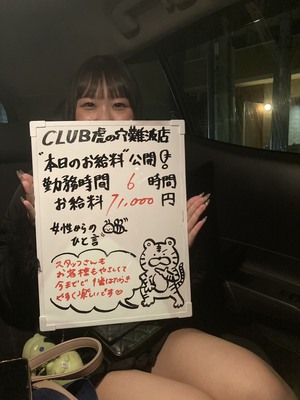 CLUB虎の穴難波店
"本日のお給料"公開!
勤務時間 6 時間
お給料 71,000 円
女性からの
ひと言
スタッフさんも
お客様もやさしくて
今までで1番はたらき
やすく楽しいです♡